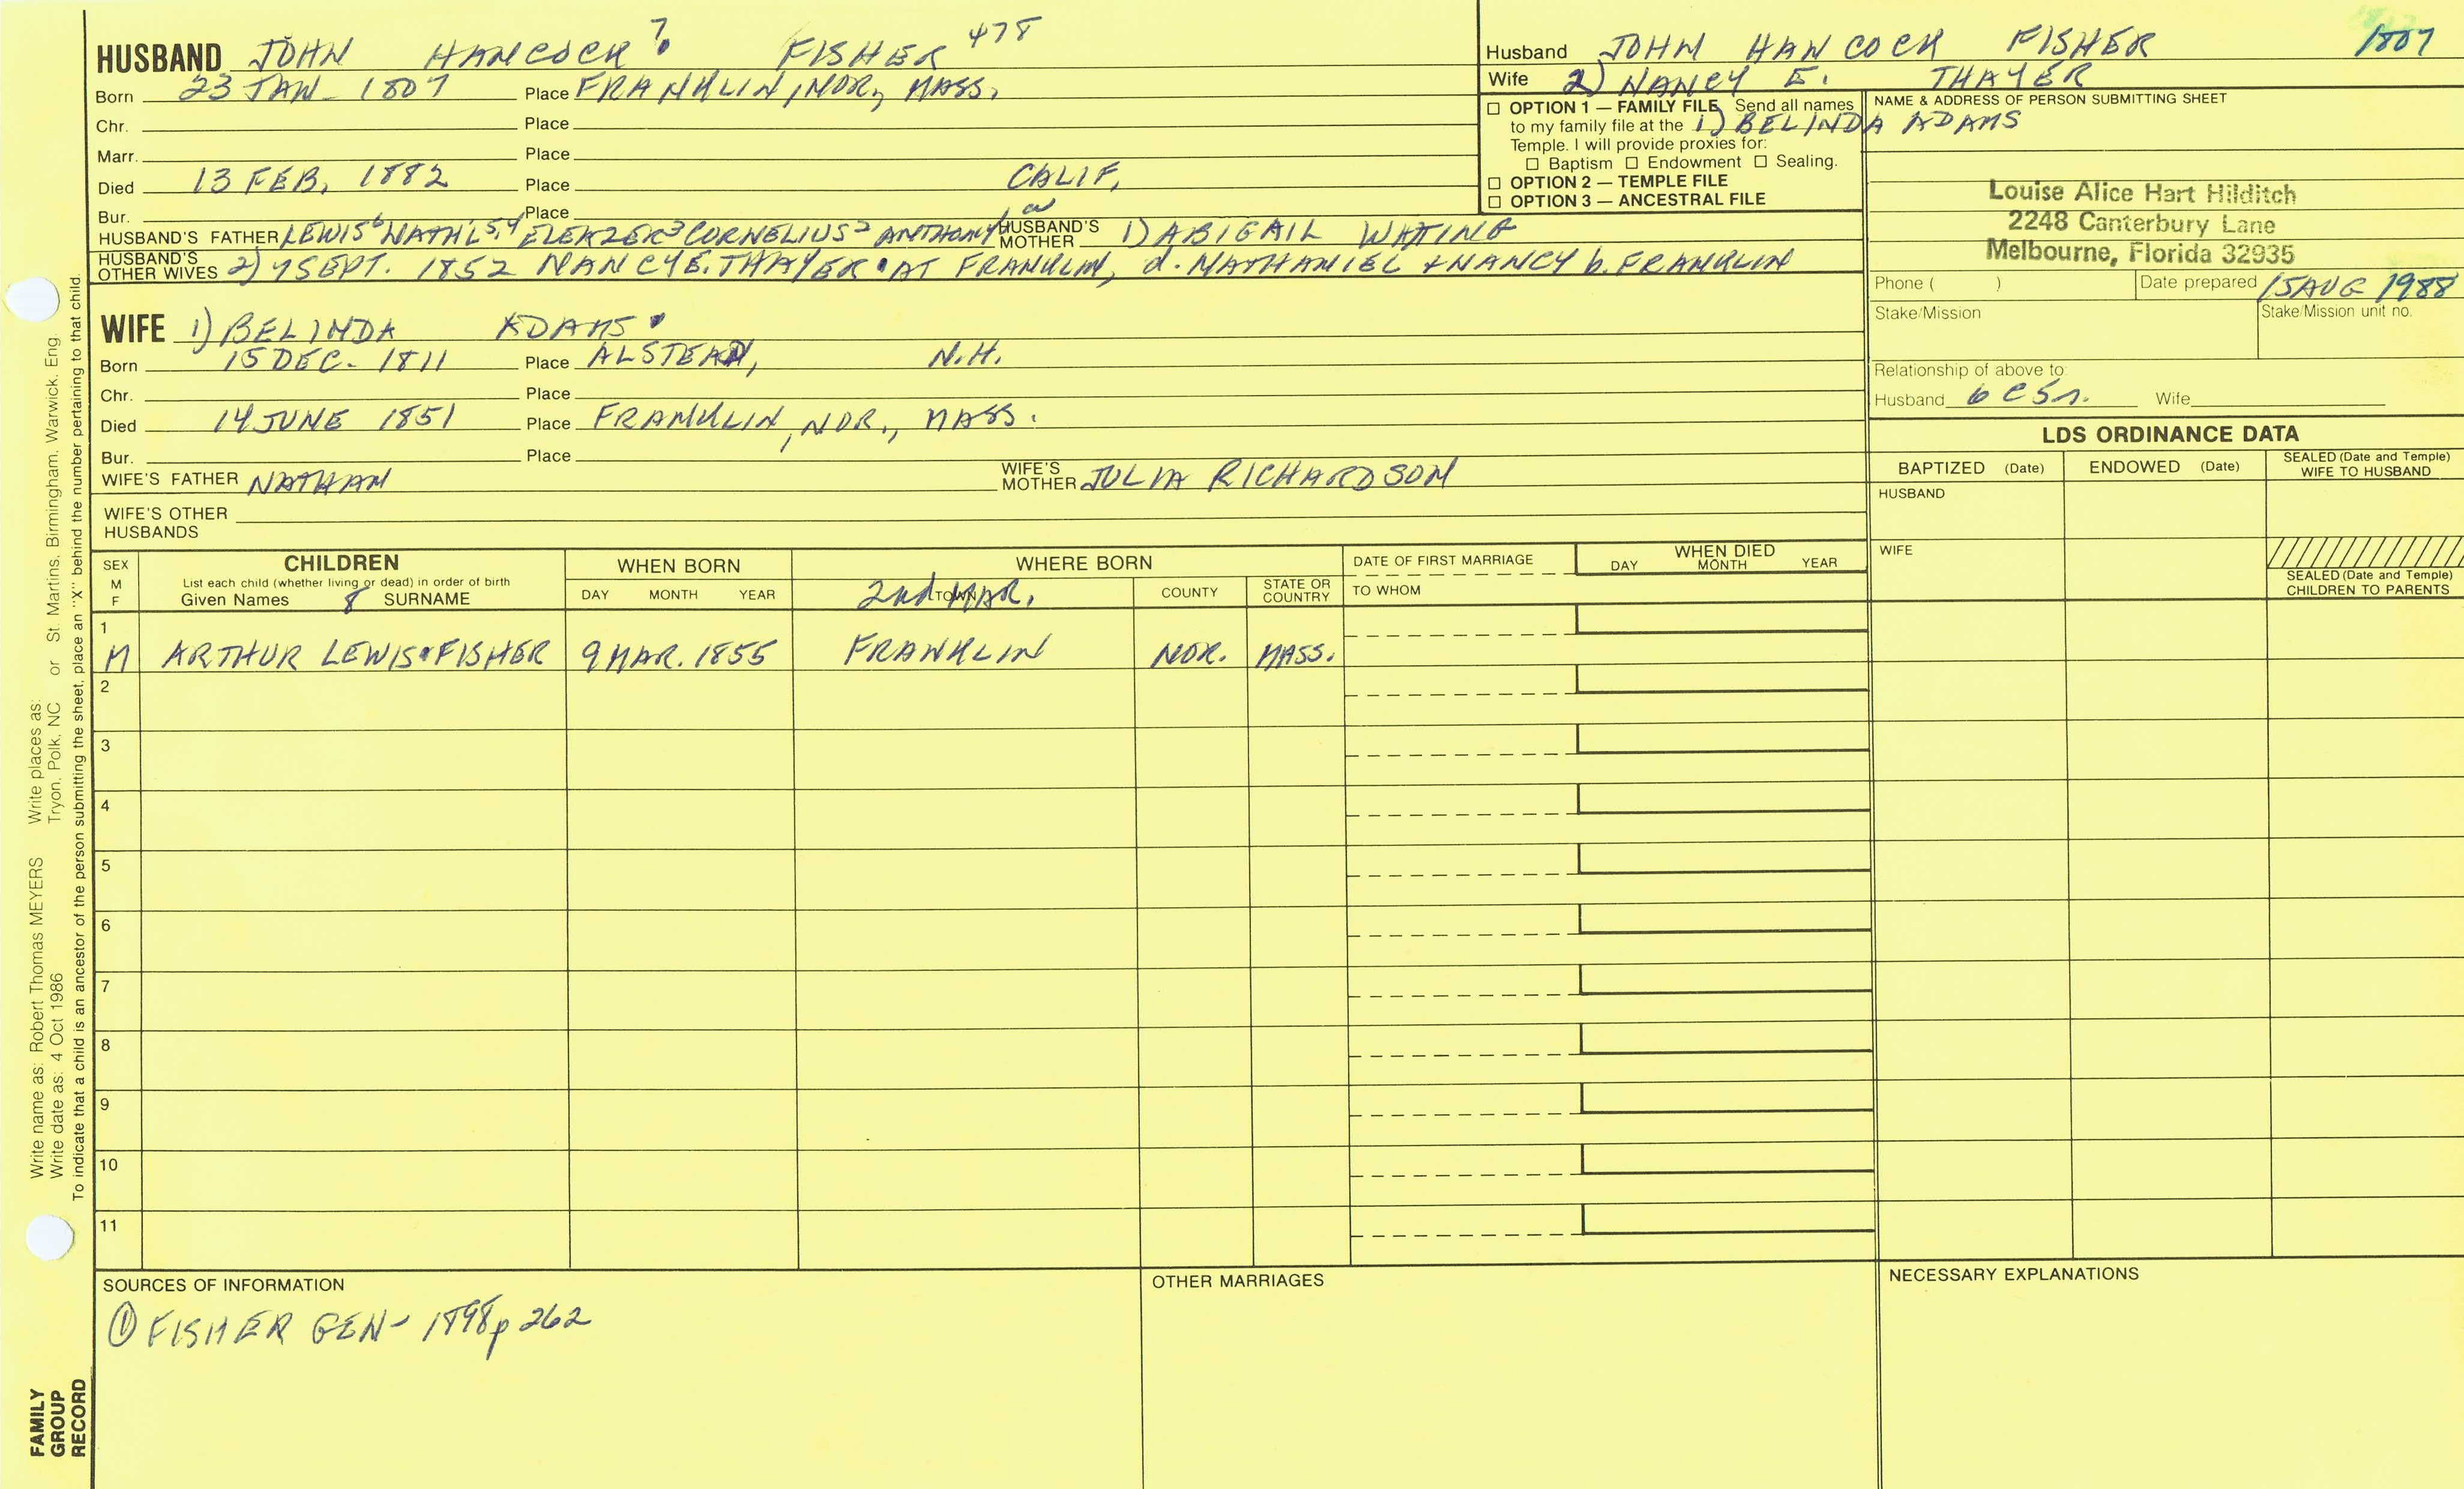 HUSBAND JOHN HANCOCK 7. FISHER 478
Born 23 JAN. 1807 Place FRANKLIN, NOR., MASS.
Chr. Place
Marr. Place
Died 13 FEB. 1882 Place CALIF.
Bur. Place
HUSBAND'S FATHER LEWIS 6 NATH'L 5,4 ELEAZER 3 CORNELIUS 2 ANTHONY 1 HUSBAND'S MOTHER 1) ABIGAIL WHITING
HUSBAND'S OTHER WIVES 2) 7 SEPT. 1852 NANCY E. THAYER • AT FRANKLIN, d. NATHANIEL + NANCY b. FRANKLIN
WIFE 1) BELINDA ADAMS •
Born 15 DEC. 1811 Place ALSTEAD, N.H.
Chr. Place
Died 14 JUNE 1851 Place FRANKLIN, NOR., MASS.
Bur. Place
WIFE'S FATHER NATHAN WIFE'S MOTHER JULIA RICHARDSON
WIFE'S OTHER HUSBANDS
Husband JOHN HANCOCK FISHER 1807
Wife 2) NANCY E. THAYER
1) BELINDA ADAMS
☐ OPTION 1 — FAMILY FILE Send all names
to my family file at the
Temple. I will provide proxies for:
☐ Baptism ☐ Endowment ☐ Sealing.
☐ OPTION 2 — TEMPLE FILE
☐ OPTION 3 — ANCESTRAL FILE
NAME & ADDRESS OF PERSON SUBMITTING SHEET
Louise Alice Hart Hilditch
2248 Canterbury Lane
Melbourne, Florida 32935
Phone ( ) Date prepared 15 AUG 1988
Stake/Mission Stake/Mission unit no.
Relationship of above to:
Husband 6 C 5 r. Wife
LDS ORDINANCE DATA
BAPTIZED (Date) ENDOWED (Date) SEALED (Date and Temple) WIFE TO HUSBAND
HUSBAND
WIFE
SEALED (Date and Temple) CHILDREN TO PARENTS
SEX M F
CHILDREN
List each child (whether living or dead) in order of birth
Given Names 8 SURNAME
WHEN BORN
DAY MONTH YEAR
WHERE BORN
TOWN 2nd MAR. COUNTY STATE OR COUNTRY
DATE OF FIRST MARRIAGE
TO WHOM
WHEN DIED
DAY MONTH YEAR
1
M ARTHUR LEWIS • FISHER 9 MAR. 1855 FRANKLIN NOR. MASS.
2
3
4
5
6
7
8
9
10
11
SOURCES OF INFORMATION
① FISHER GEN- 1898 p 262
OTHER MARRIAGES
NECESSARY EXPLANATIONS
Write name as: Robert Thomas MEYERS Write places as:
Write date as: 4 Oct 1986 Tryon, Polk, NC or St. Martins, Birmingham, Warwick, Eng.
To indicate that a child is an ancestor of the person submitting the sheet, place an "X" behind the number pertaining to that child.
FAMILY
GROUP
RECORD